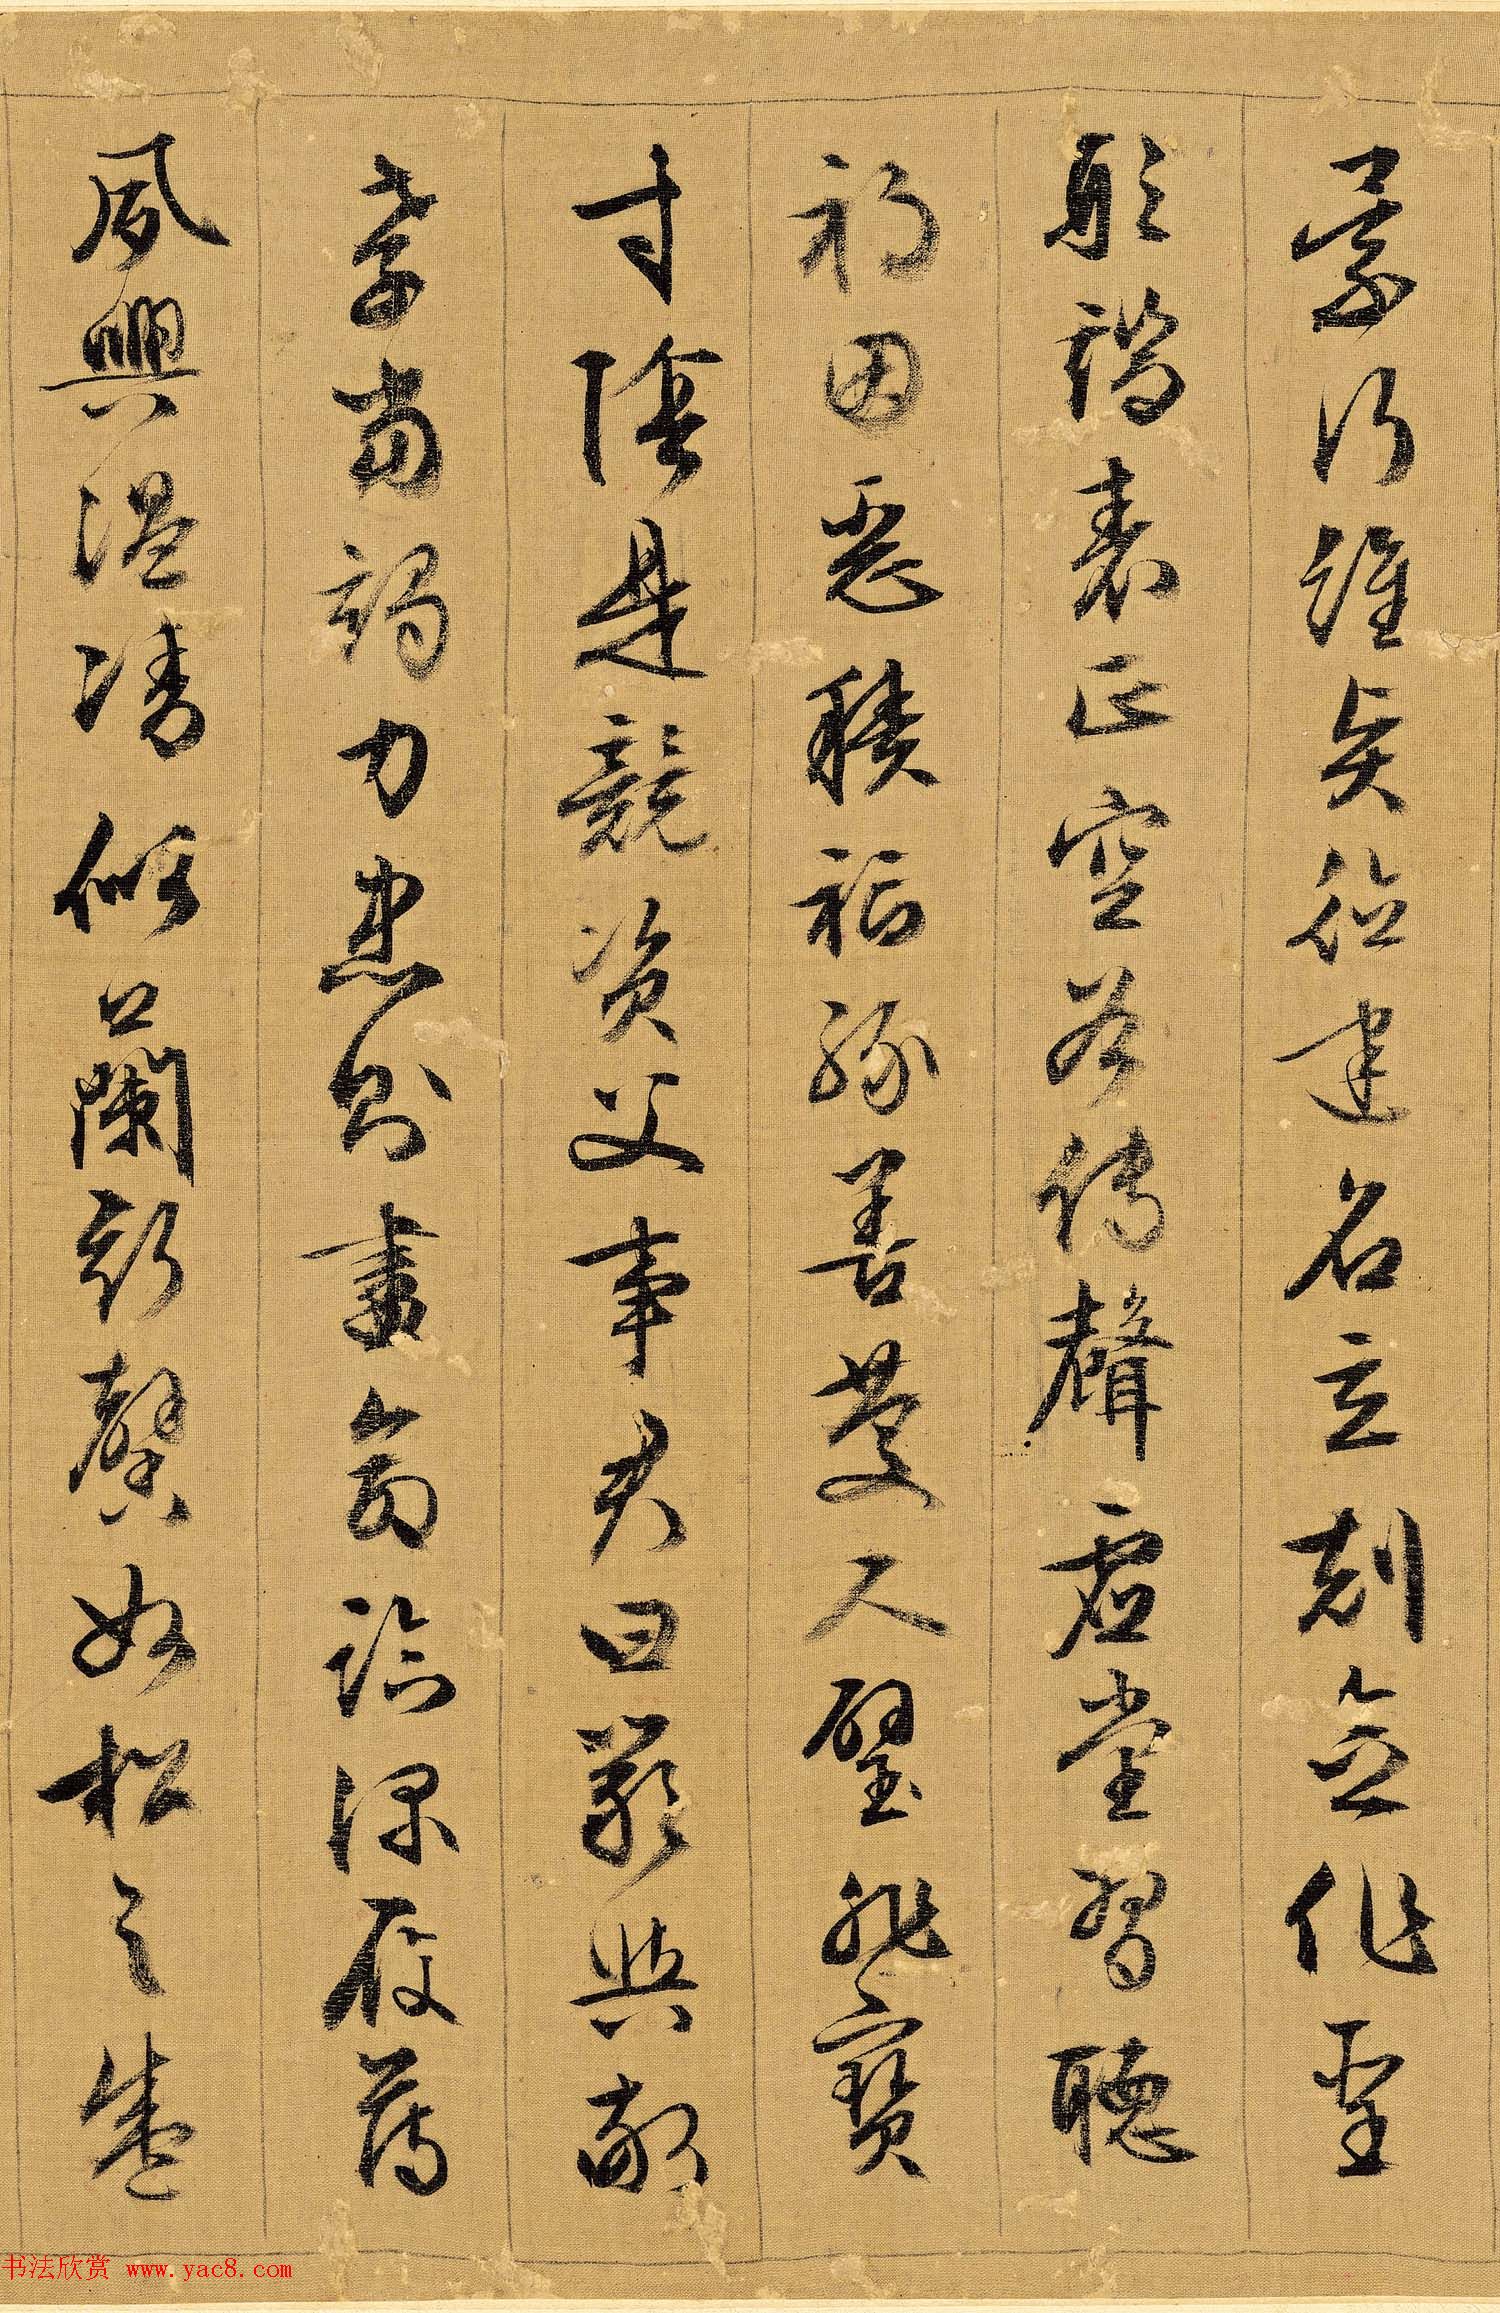 景行維賢德建名立剋念作聖
形端表正空谷傳聲虛堂習聽
禍因惡積福緣善慶尺璧非寶
寸陰是競資父事君曰嚴與敬
孝當竭力忠則盡命臨深履薄
夙興溫凊似蘭斯馨如松之盛
书法欣赏 www.yac8.com